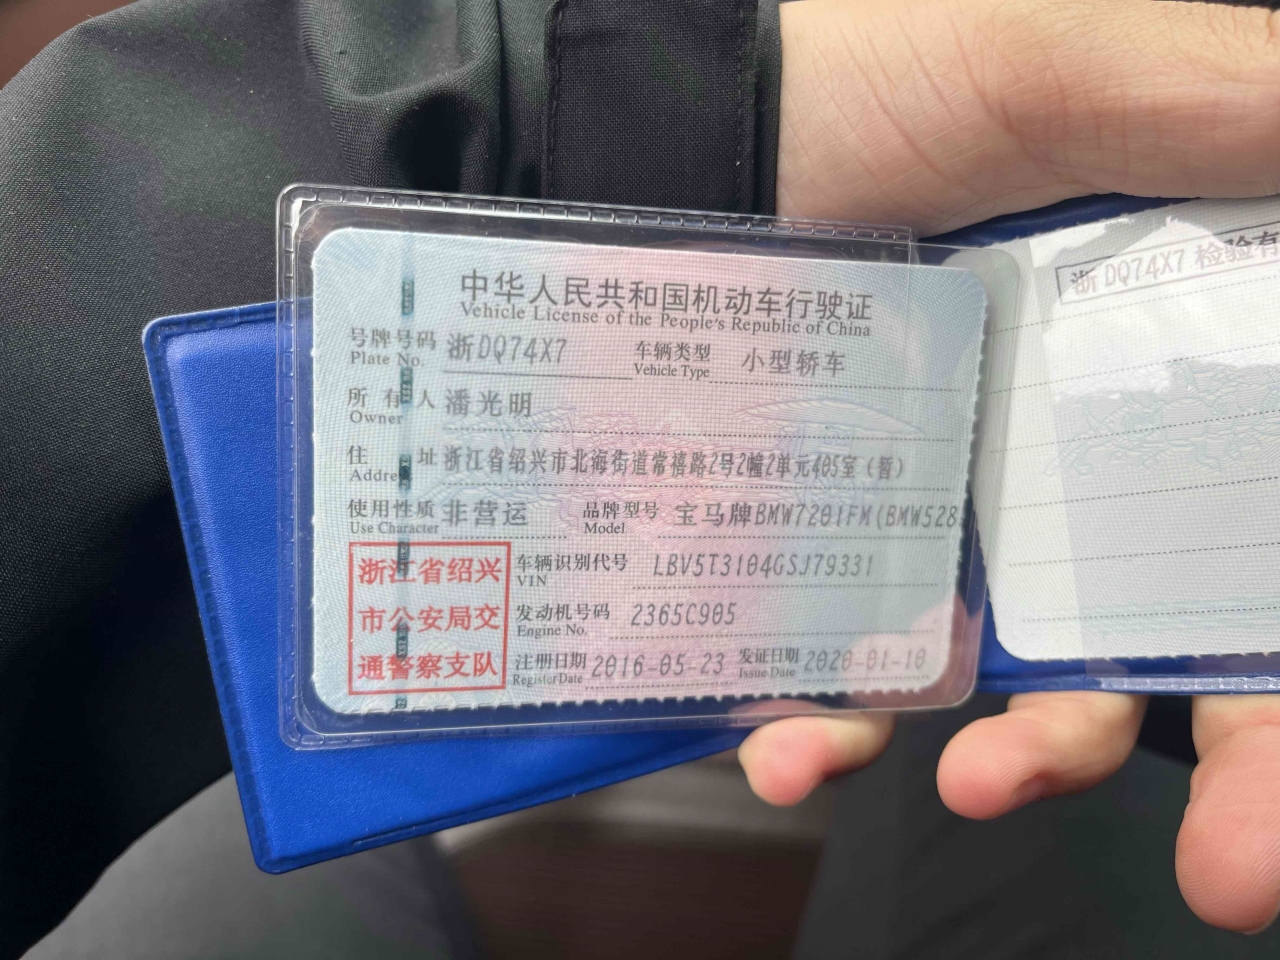 中华人民共和国机动车行驶证
Vehicle License of the People's Republic of China
号牌号码 浙DQ74X7 车辆类型 小型轿车
Plate No. Vehicle Type
所有人 潘光明
Owner
住址 浙江省绍兴市北海街道常禧路2号2幢2单元405室（暂）
Address
使用性质 非营运 品牌型号 宝马牌BMW7201FM(BMW528
Use Character Model
浙江省绍兴
市公安局交
通警察支队
车辆识别代号 LBV5T3104GSJ79331
VIN
发动机号码 2365C905
Engine No.
注册日期 2016-05-23 发证日期 2020-01-10
Register Date Issue Date
浙DQ74X7 检验有